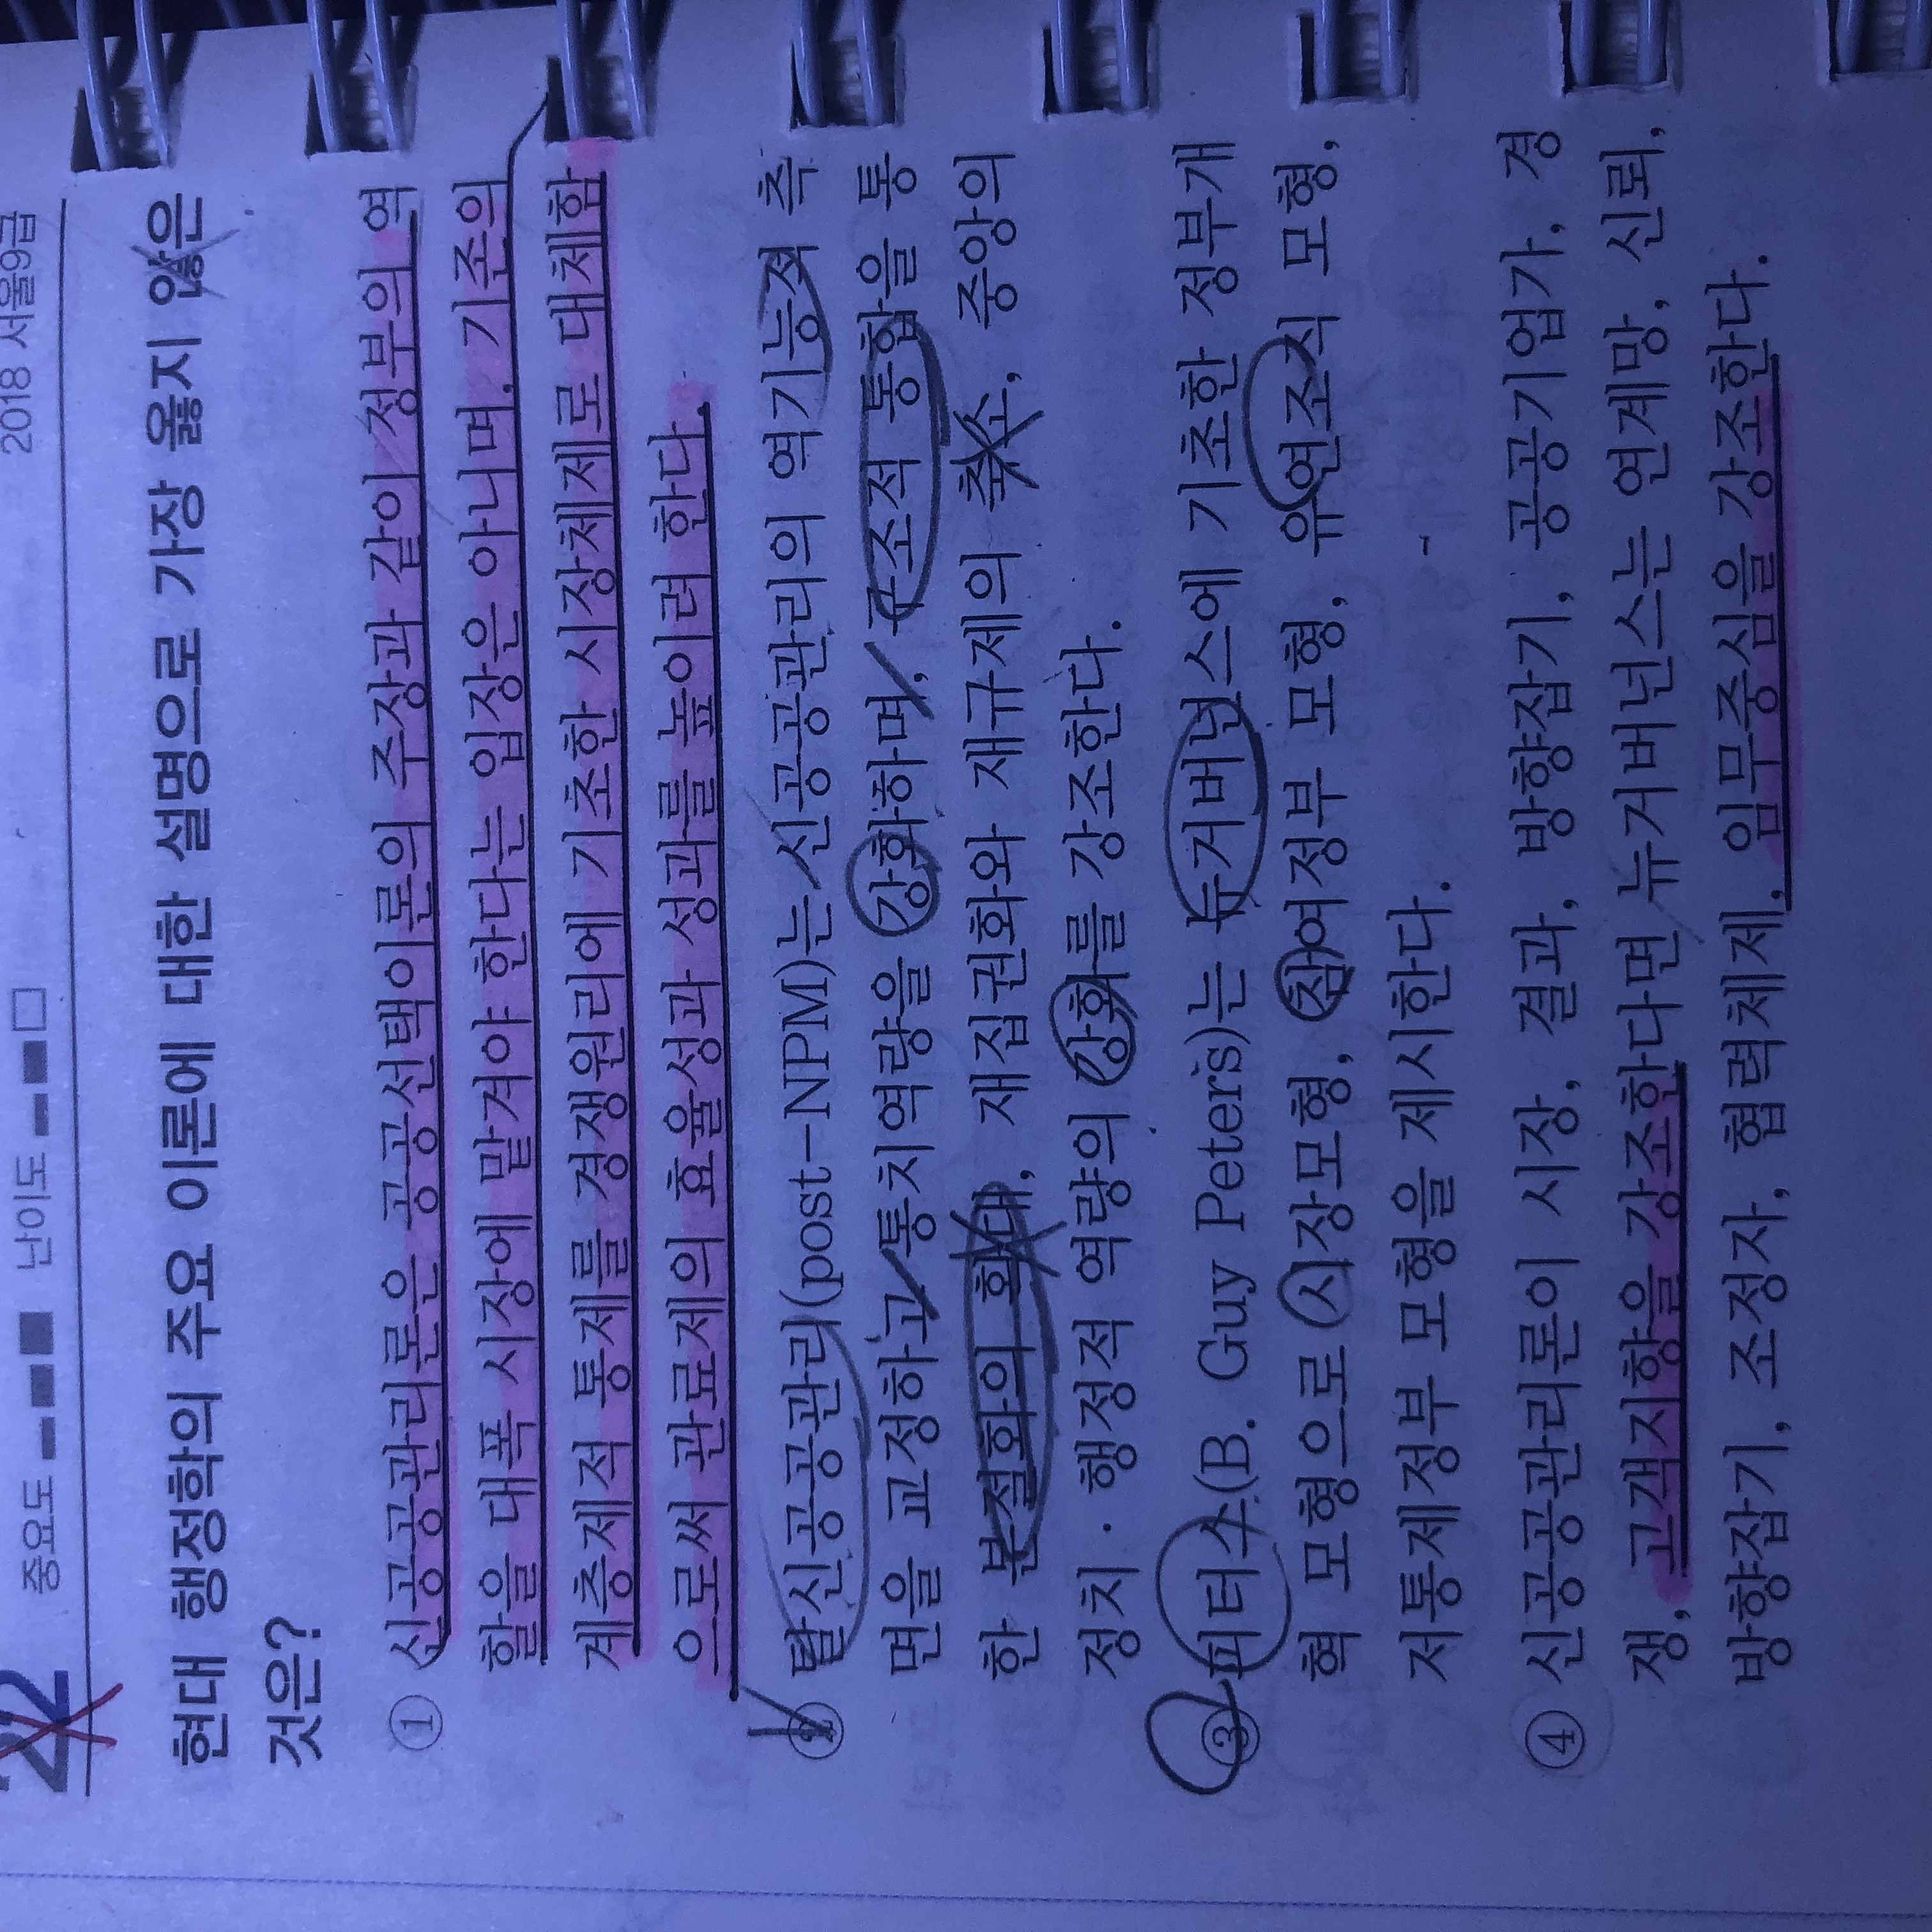 22
중요도 난이도 2018 서울9급
현대 행정학의 주요 이론에 대한 설명으로 가장 옳지 않은
것은?
① 신공공관리론은 공공선택이론의 주장과 같이 정부의 역
할을 대폭 시장에 맡겨야 한다는 입장은 아니며, 기존의
계층제적 통제를 경쟁원리에 기초한 시장체제로 대체함
으로써 관료제의 효율성과 성과를 높이려 한다.
② 탈신공공관리(post-NPM)는 신공공관리의 역기능적 측
면을 교정하고 통치역량을 강화하며, 구조적 통합을 통
한 분절화의 확대, 재집권화와 재규제의 축소, 중앙의
정치·행정적 역량의 강화를 강조한다.
③ 피터스(B. Guy Peters)는 뉴거버넌스에 기초한 정부개
혁 모형으로 시장모형, 참여정부 모형, 유연조직 모형,
저통제정부 모형을 제시한다.
④ 신공공관리론이 시장, 결과, 방향잡기, 공공기업가, 경
쟁, 고객지향을 강조한다면 뉴거버넌스는 연계망, 신뢰,
방향잡기, 조정자, 협력체제, 임무중심을 강조한다.